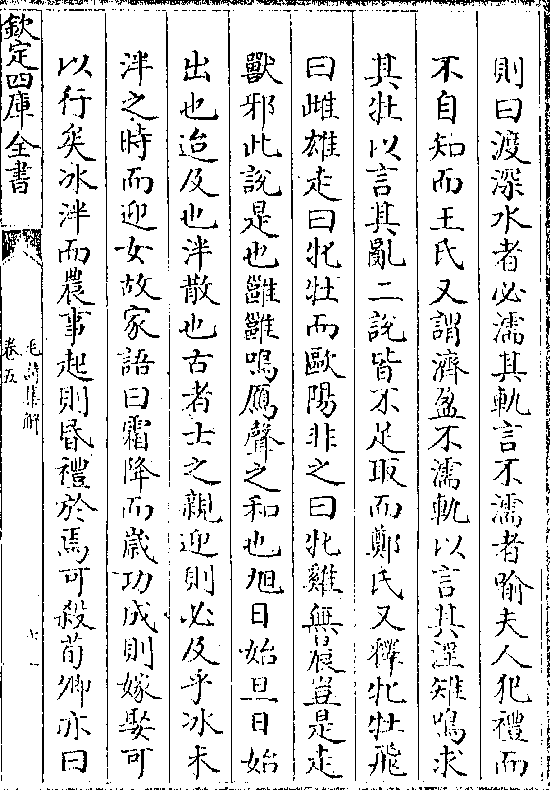 則曰渡深水者必濡其軌言不濡者喻夫人犯禮而
不自知而王氏又謂濟盈不濡軌以言其淫雉鳴求
其牡以言其亂二說皆不足取而鄭氏又釋牝牡飛
曰雌雄走曰牝牡而歐陽非之曰牝雞無晨豈是走
獸邪此說是也雝雝鳴鴈聲之和也旭日始旦日始
出也迨及也泮散也古者士之親迎則必及乎冰未
泮之時而迎女故家語曰霜降而歲功成則嫁娶可
以行矣冰泮而農事起則昏禮於焉可殺荀卿亦曰
欽定四庫全書
毛詩集解
卷五